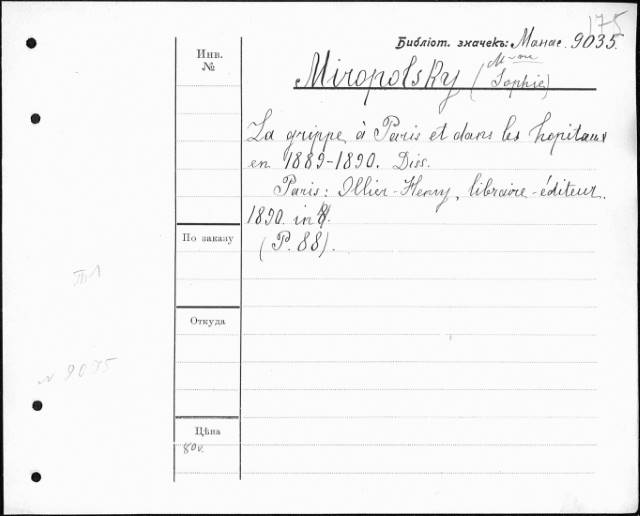 175
Библіот. значекъ: Манас. 9035.
Инв.
№
Miropolsky (M-me Sophie)
La grippe à Paris et dans les hopitaux
en 1889-1890. Diss.
Paris: Ollier-Henry, libraire-éditeur.
1890. in 4.
(P. 88).
По заказу
Откуда
№ 9035
Цѣна
80к.